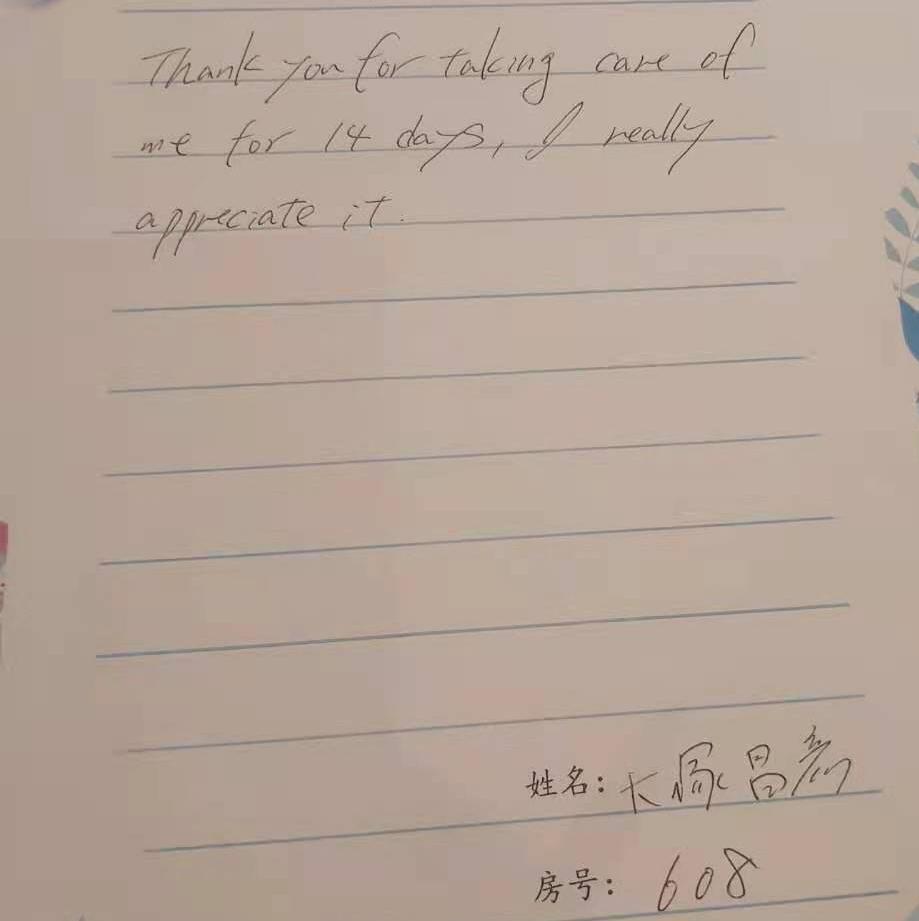 Thank you for taking care of
me for 14 days, I really
appreciate it.
姓名: 大塚昌彦
房号: 608